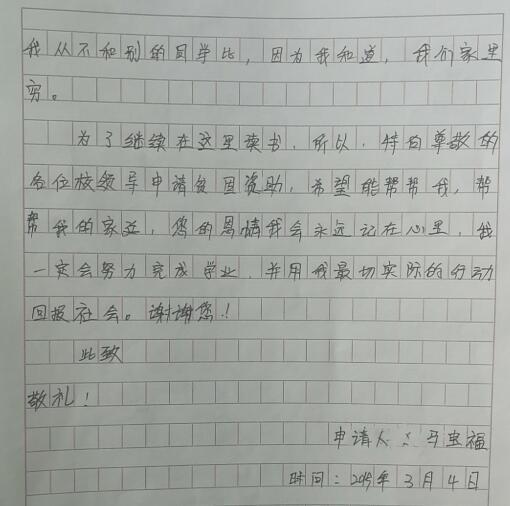 我从不和别的同学比，因为我知道，我们家里
穷。
为了继续在这里读书，所以，特向尊敬的
各位校领导申请贫困资助，希望能帮帮我，帮
帮我的家庭，您的恩情我会永远记在心里，我
一定会努力完成学业，并用我最切实际的行动
回报社会。谢谢您！
此致
敬礼！
申请人：马宝福
时间：2019年3月4日